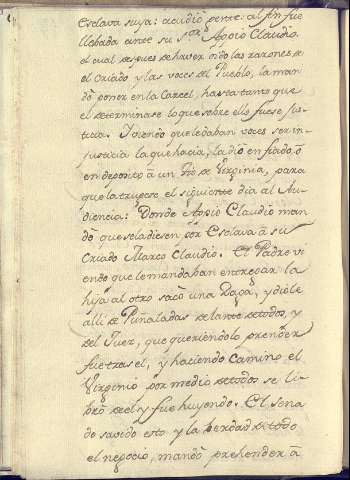 Esclava suya: acudiò gente: al fin fue
llebada ante su Sor. Appio Claudio,
el cual despues de haver oìdo las razones de
el Criado y las voces del Pueblo, la man
dò poner en la Carcel, hasta tanto que
el determinase lo que sobre ello fuese jus
ticia. Viendo que le daban voces ser in-
justicia la que hacia, la diò en fiado ò
en deposito à un tio de Virginia, para
que la trugese el siguiente dia al Au
diencia: Donde Appio Claudio man
dò que se la diesen por Esclava à su
Criado Marco Claudio. El Padre vi
endo que le mandaban entregar la
hija al otro sacò una Daga, y diòle
alli de Puñaladas delante de todos, y
del Juez, que queriendolo prender
fue tras el, y haciendo camino el
Virginio por medio de todos se li
brò de el y fue huyendo. El sena
do savido esto y la verdad de todo
el negocio, mandò prehender à